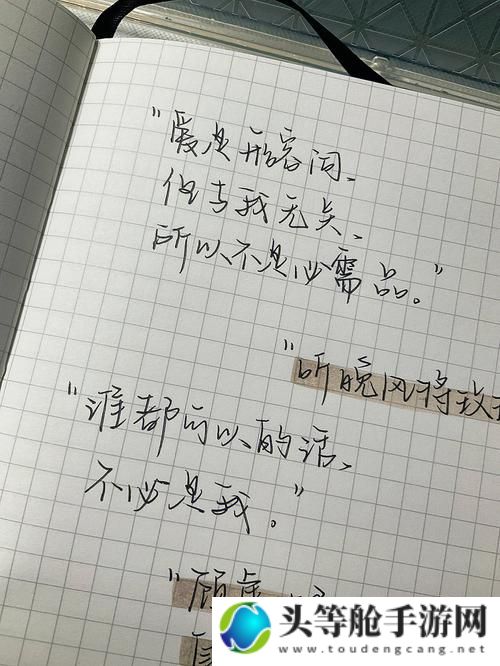 "爱是形容词、
但与我无关、
所以不是必需品。"
"听晚风将故
"谁都可以的话、
不必是我。"
"顾虑
头等舱手游网
www.toudengcang.net